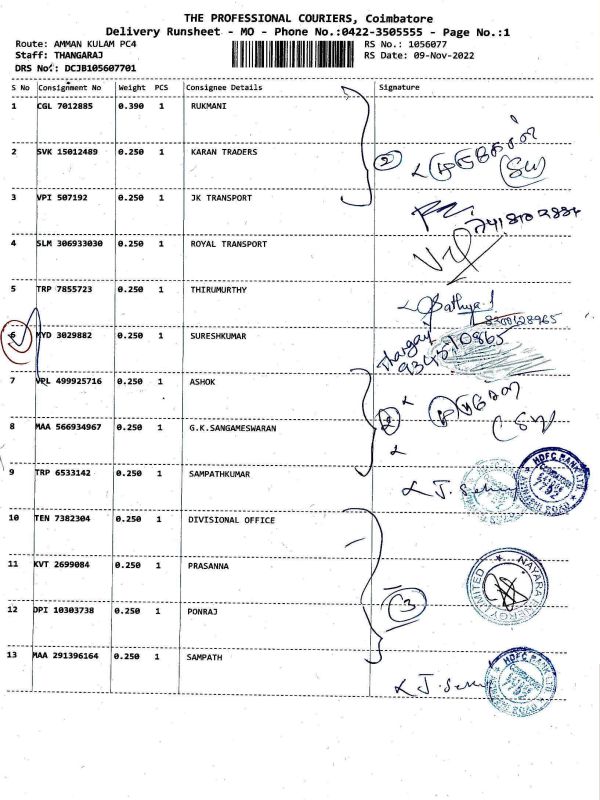 THE PROFESSIONAL COURIERS, Coimbatore
Delivery Runsheet - MO - Phone No.:0422-3505555 - Page No.:1
Route: AMMAN KULAM PC4
RS No.: 1056077
Staff: THANGARAJ
RS Date: 09-Nov-2022
DRS No: DCJB105607701
S No Consignment No Weight PCS Consignee Details Signature
1 CGL 7012885 0.390 1 RUKMANI
2 SVK 15012489 0.250 1 KARAN TRADERS
2
3 VPI 507192 0.250 1 JK TRANSPORT
4 SLM 306933030 0.250 1 ROYAL TRANSPORT
5 TRP 7855723 0.250 1 THIRUMURTHY
Sathya.S
6 MYD 3029882 0.250 1 SURESHKUMAR
Thangaraj
7 VPL 499925716 0.250 1 ASHOK
8 MAA 566934967 0.250 1 G.K.SANGAMESWARAN
9 TRP 6533142 0.250 1 SAMPATHKUMAR
HDFC BANK LTD
10 TEN 7382304 0.250 1 DIVISIONAL OFFICE
11 KVT 2699084 0.250 1 PRASANNA
NAYARA ENERGY LIMITED
12 DPI 10303738 0.250 1 PONRAJ
3
13 MAA 291396164 0.250 1 SAMPATH
HDFC BANK LTD